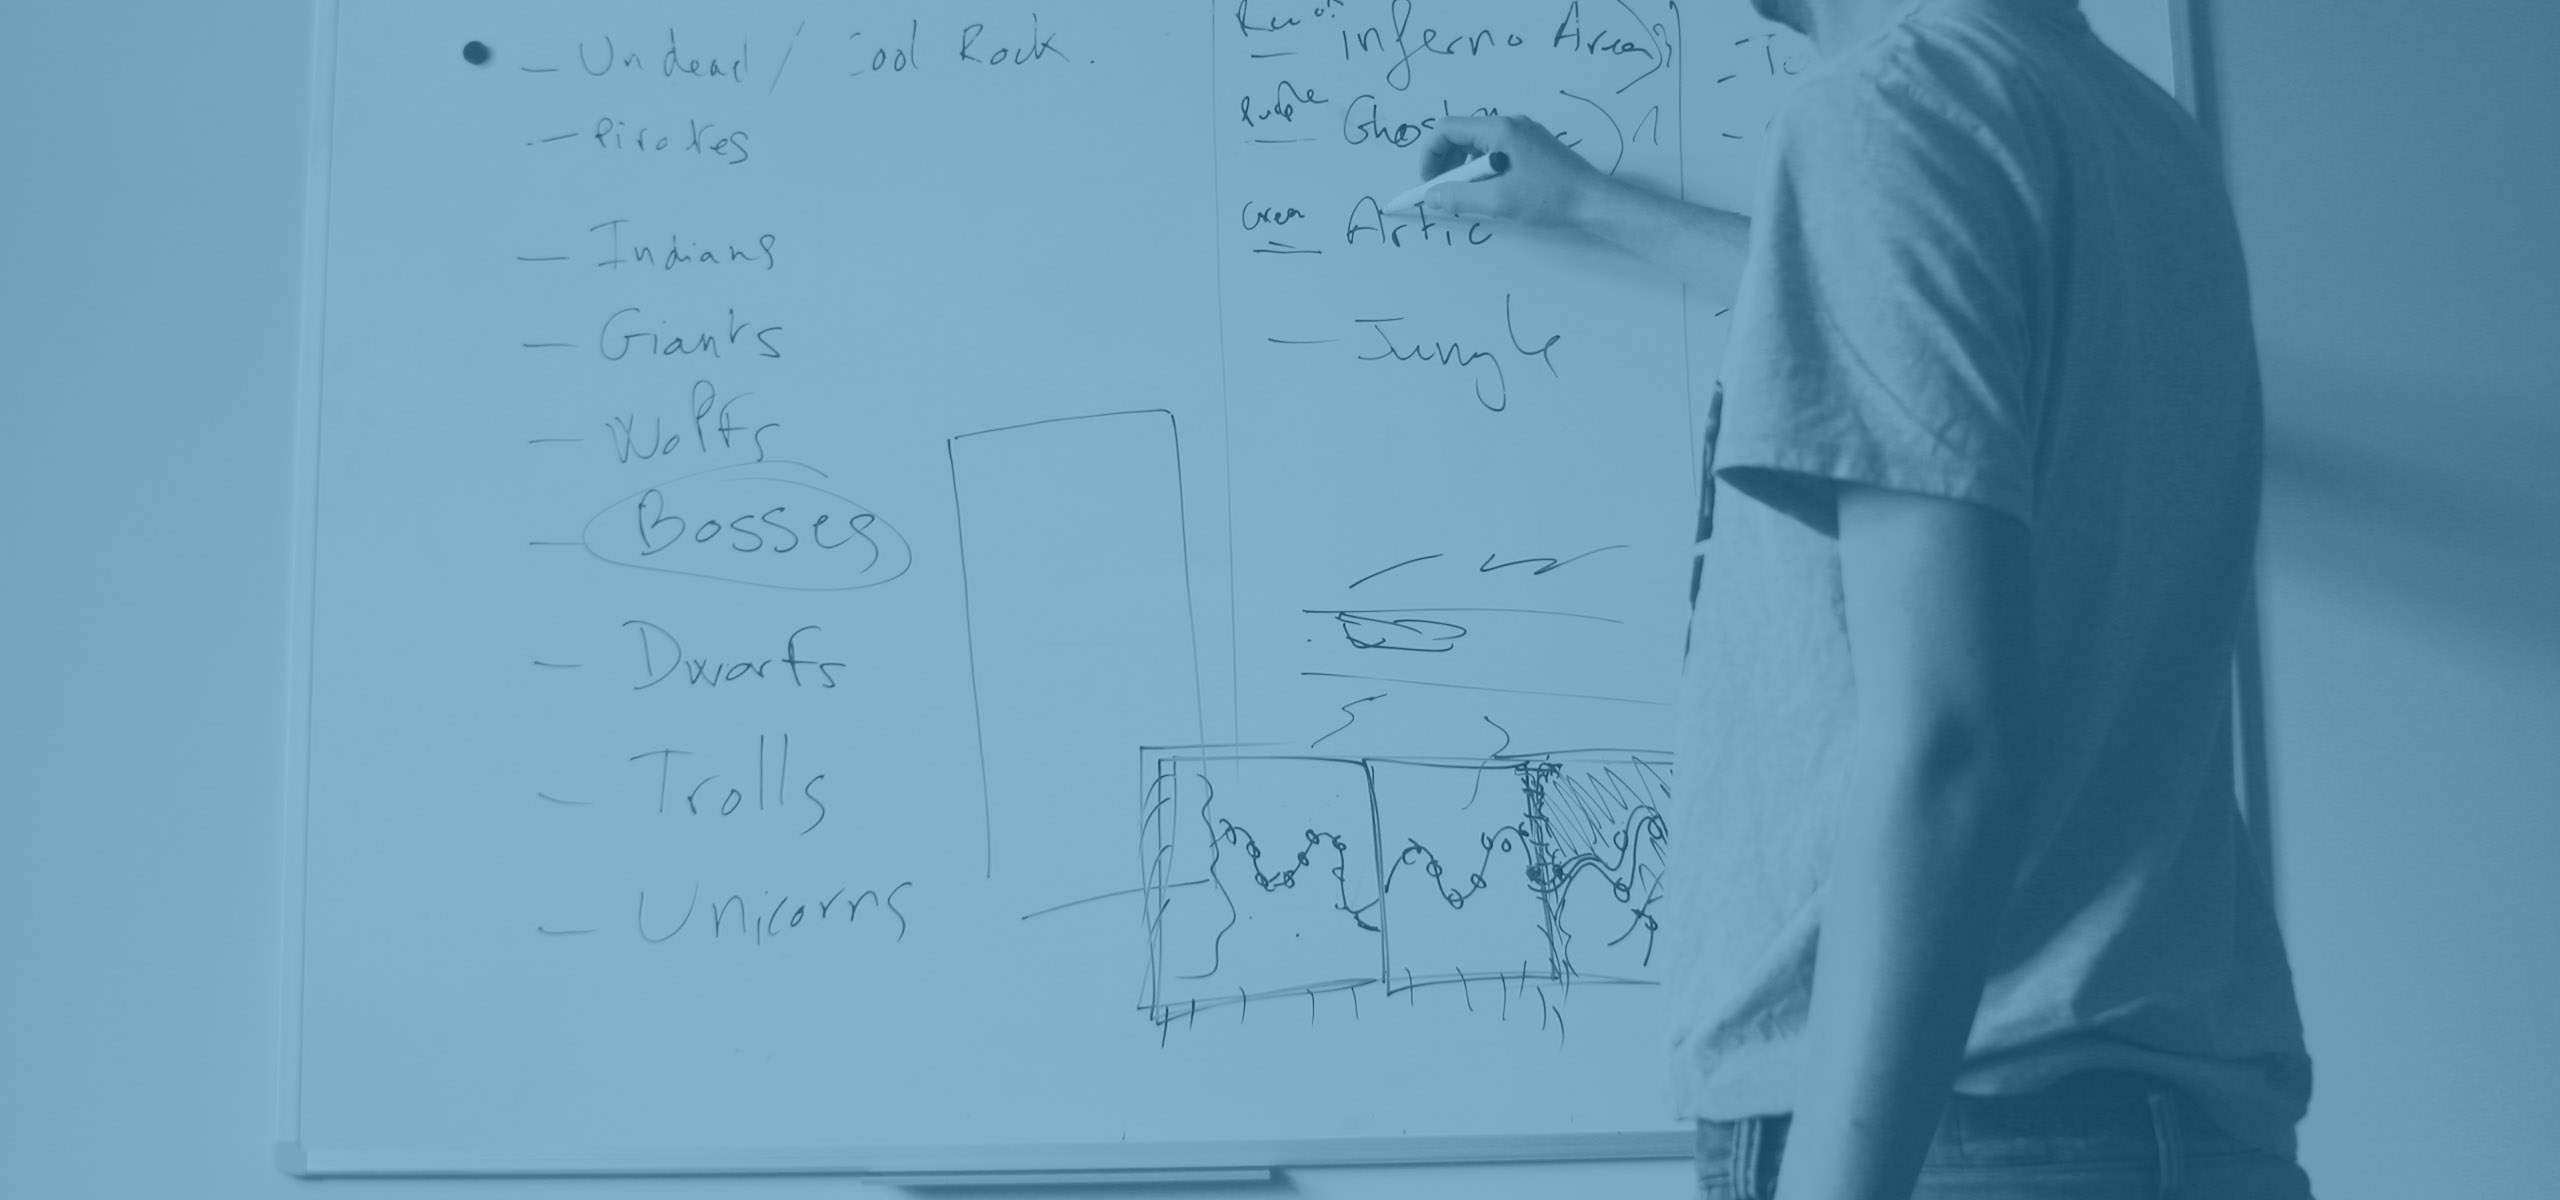 - Undead / Cool Rock.
- Pirates
- Indians
- Giants
- Wolfs
- Bosses
- Dwarfs
- Trolls
- Unicorns
inferno Area
Artic
- Jungle